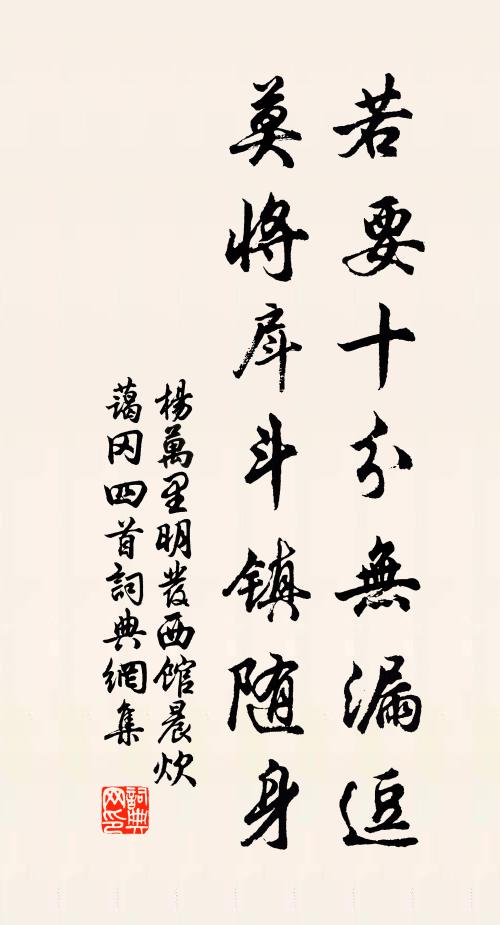 若要十分無漏逗
莫將戽斗镇随身
楊萬里明發西館晨炊
藹冈四首詞典網集
詞典
网印